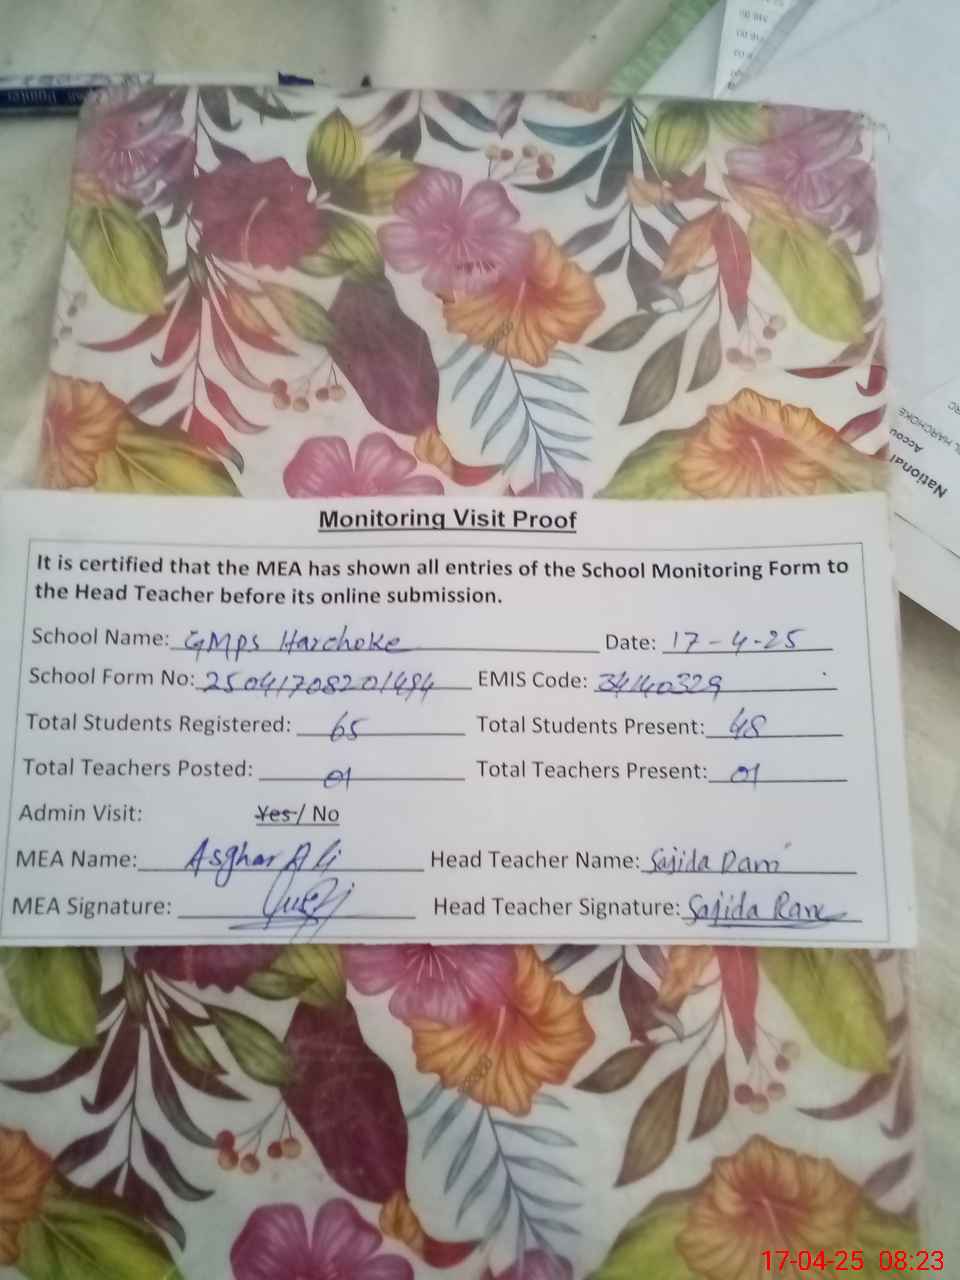 Pointer
National
Accou
L HARCHOKE
Monitoring Visit Proof
It is certified that the MEA has shown all entries of the School Monitoring Form to
the Head Teacher before its online submission.
School Name: GMPS Harchoke Date: 17-4-25
School Form No: 25041708201494 EMIS Code: 34140329
Total Students Registered: 65 Total Students Present: 48
Total Teachers Posted: 01 Total Teachers Present: 01
Admin Visit: Yes / No
MEA Name: Asghar Ali Head Teacher Name: Sajida Rani
MEA Signature: Head Teacher Signature: Sajida Rani
17-04-25 08:23